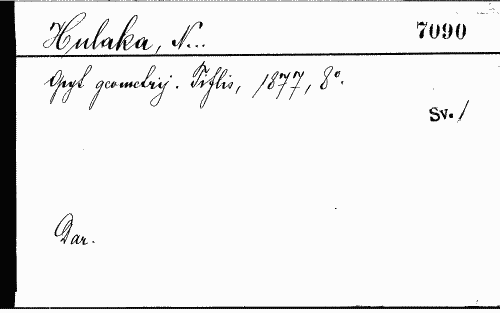 Hulaka, N...
7090
Opyt geometrij. Tiflis, 1877, 8°.
Sv. /
Dar.